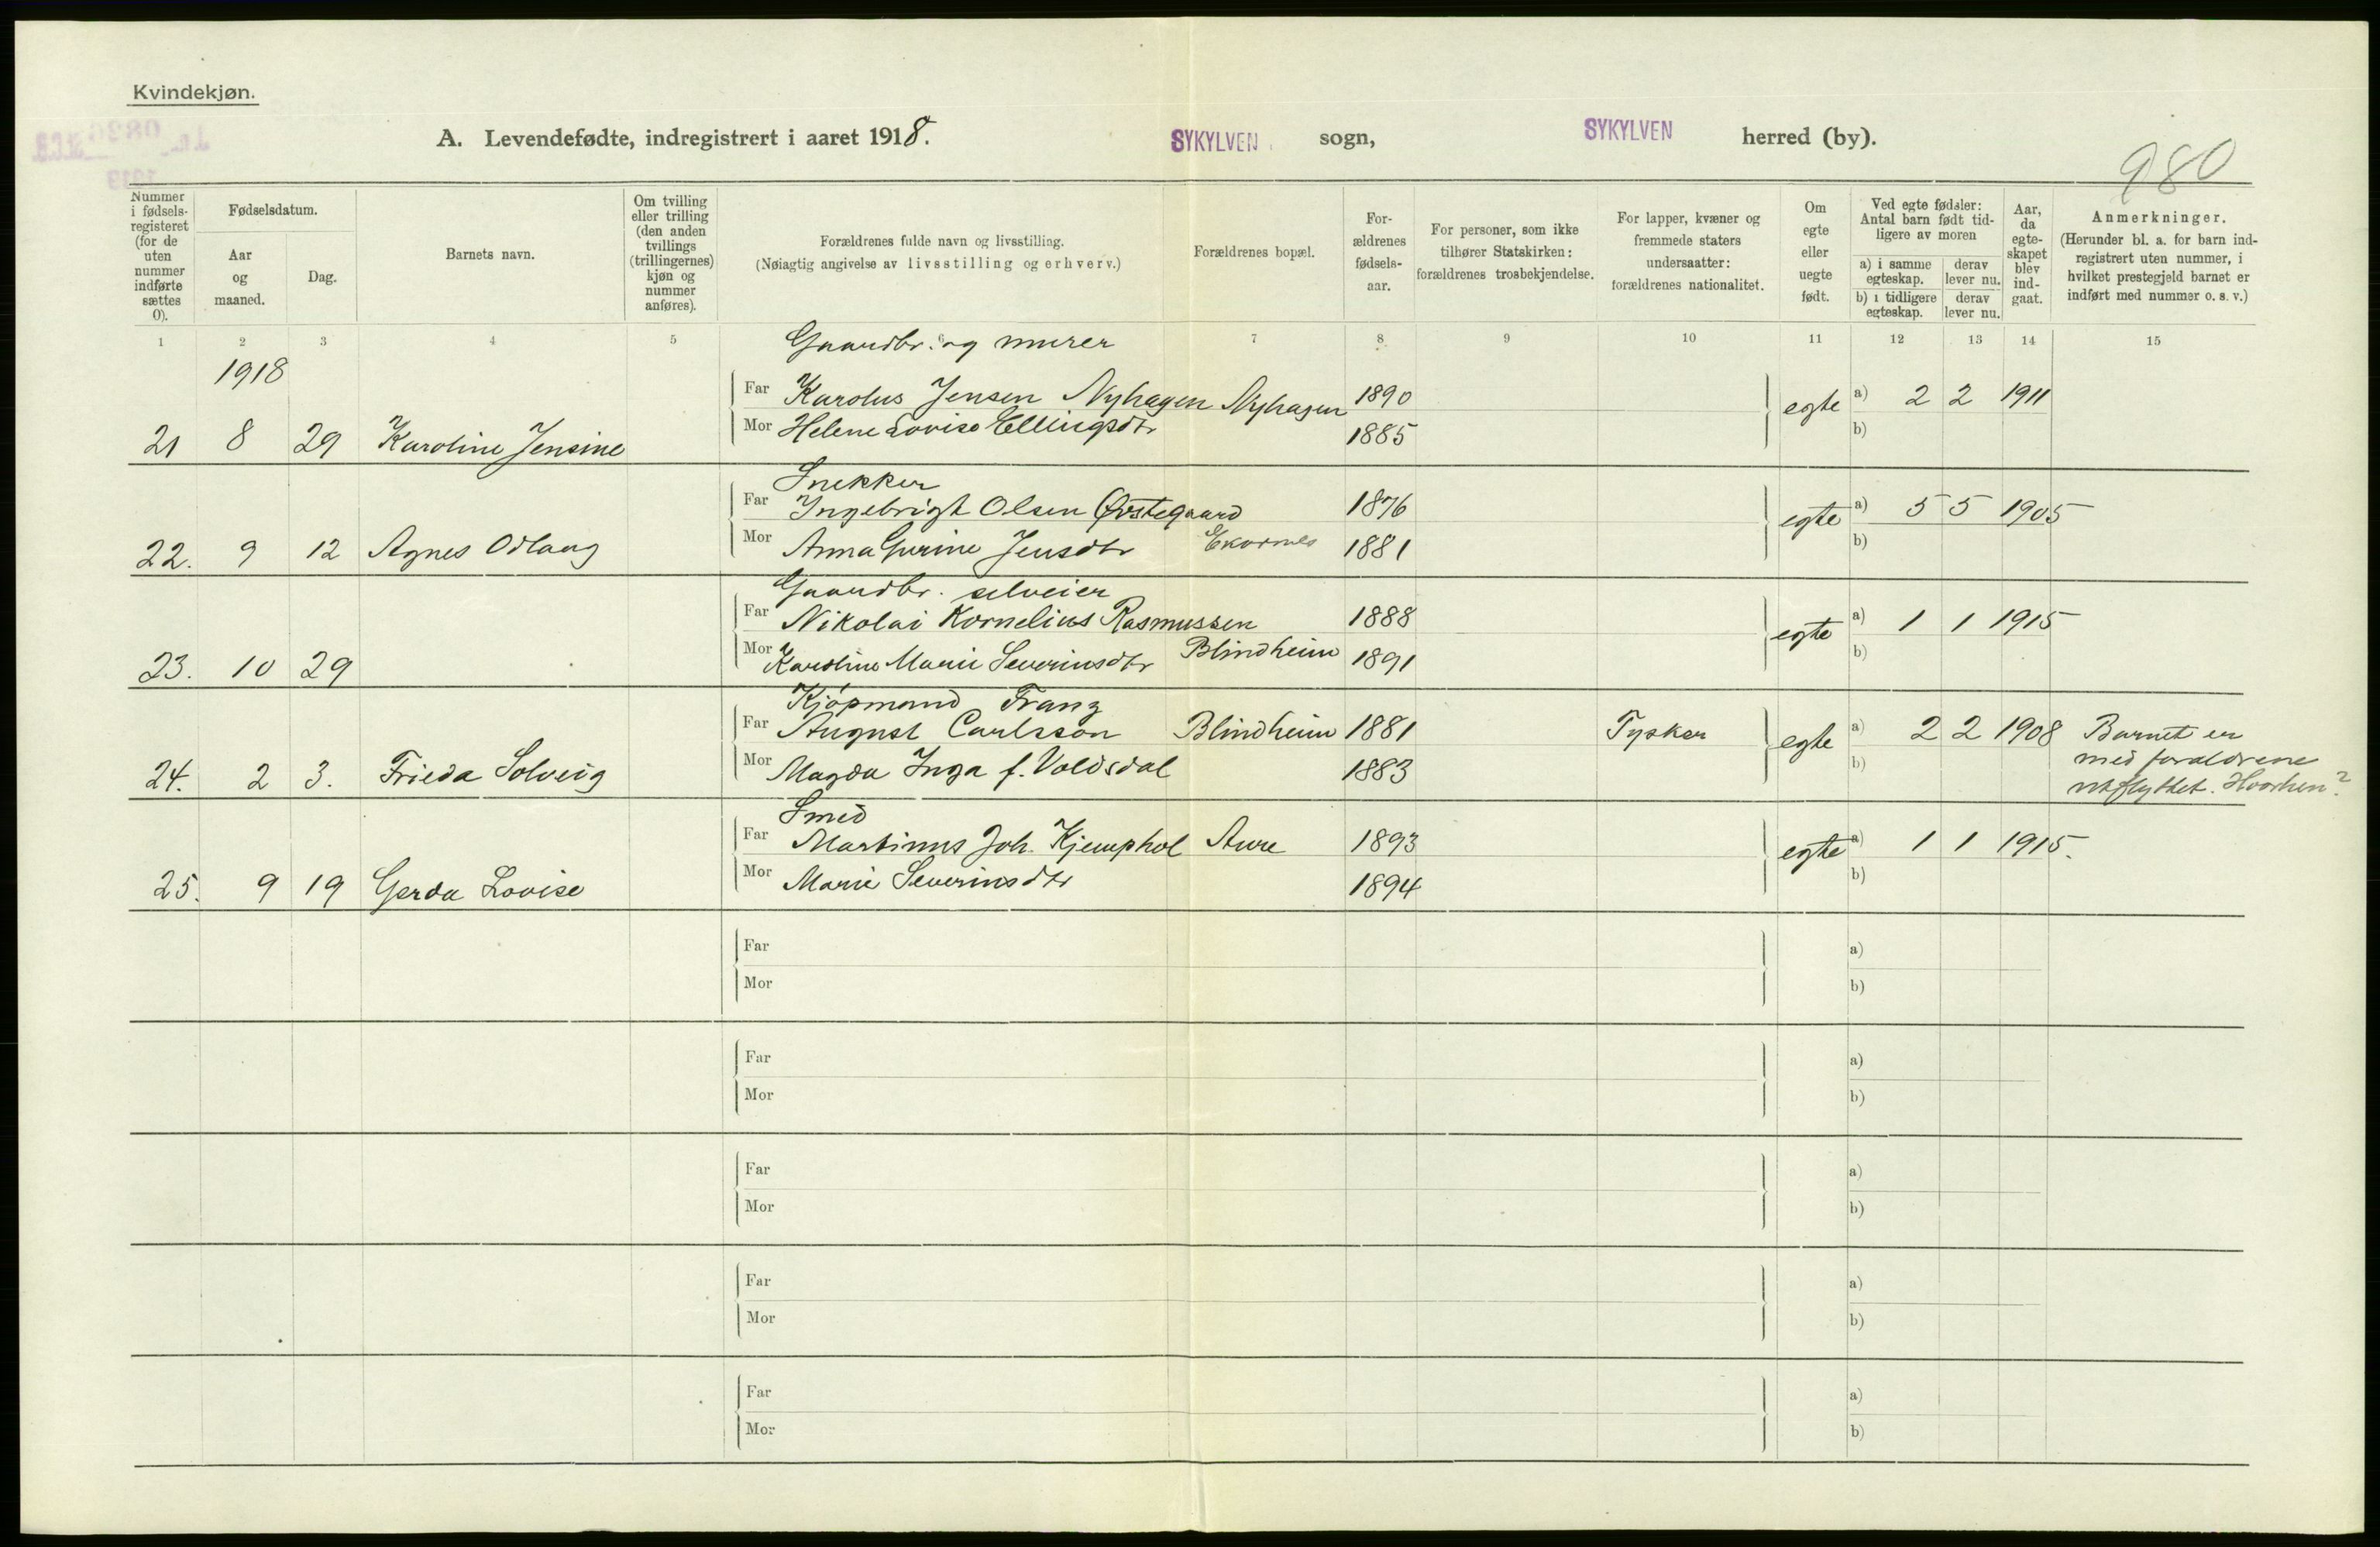 Kvindekjøn.
A. Levendefødte, indregistrert i aaret 1918. SYKYLVEN sogn, SYKYLVEN herred (by).
980
Nummer i fødsels-registeret (for de uten nummer indførte sættes 0).
Fødselsdatum.
Aar og maaned.
Dag.
Barnets navn.
Om tvilling eller trilling (den anden tvillings (trillingernes) kjøn og nummer anføres).
Forældrenes fulde navn og livsstilling.
(Nøiagtig angivelse av livsstilling og erhverv.)
Forældrenes bopæl.
For-ældrenes fødsels-aar.
For personer, som ikke tilhører Statskirken: forældrenes trosbekjendelse.
For lapper, kvæner og fremmede staters undersaatter: forældrenes nationalitet.
Om egte eller uegte født.
Ved egte fødsler: Antal barn født tid-ligere av moren
a) i samme egteskap. derav lever nu.
b) i tidligere egteskap. derav lever nu.
Aar, da egte-skapet blev ind-gaat.
Anmerkninger.
(Herunder bl. a. for barn ind-registrert uten nummer, i hvilket prestegjeld barnet er indført med nummer o. s. v.)
1 2 3 4 5 6 7 8 9 10 11 12 13 14 15
1918
Gaardbr. og murer
Far Karolus Jensen Nyhagen Nyhagen 1890 egte a) 2 2 1911
21 8 29 Karoline Jensine Mor Helene Lovise Ellingsdtr 1885 b)
Snekker
Far Ingebrigt Olsen Øvstegaard 1876 egte a) 5 5 1905
22. 9 12 Agnes Odlaug Mor Anna Gurine Jensdtr Ekornes 1881 b)
Gaardbr. selveier
Far Nikolai Kornelius Rasmussen 1888 egte a) 1 1 1915
23. 10 29 Mor Karoline Marie Severinsdtr Blindheim 1891 b)
Kjøpmand Franz
Far August Carlsson Blindheim 1881 Tysker egte a) 2 2 1908 Barnet er
med forældrene
24. 2 3. Frieda Solveig Mor Magda Inga f. Voldsdal 1883 b) utflyttet. Hvorhen?
Smed
Far Martinus Joh. Kjemphol Aure 1893 egte a) 1 1 1915.
25. 9 19 Gerda Lovise Mor Marie Severinsdtr 1894 b)
Far a)
Mor b)
Far a)
Mor b)
Far a)
Mor b)
Far a)
Mor b)
Far a)
Mor b)